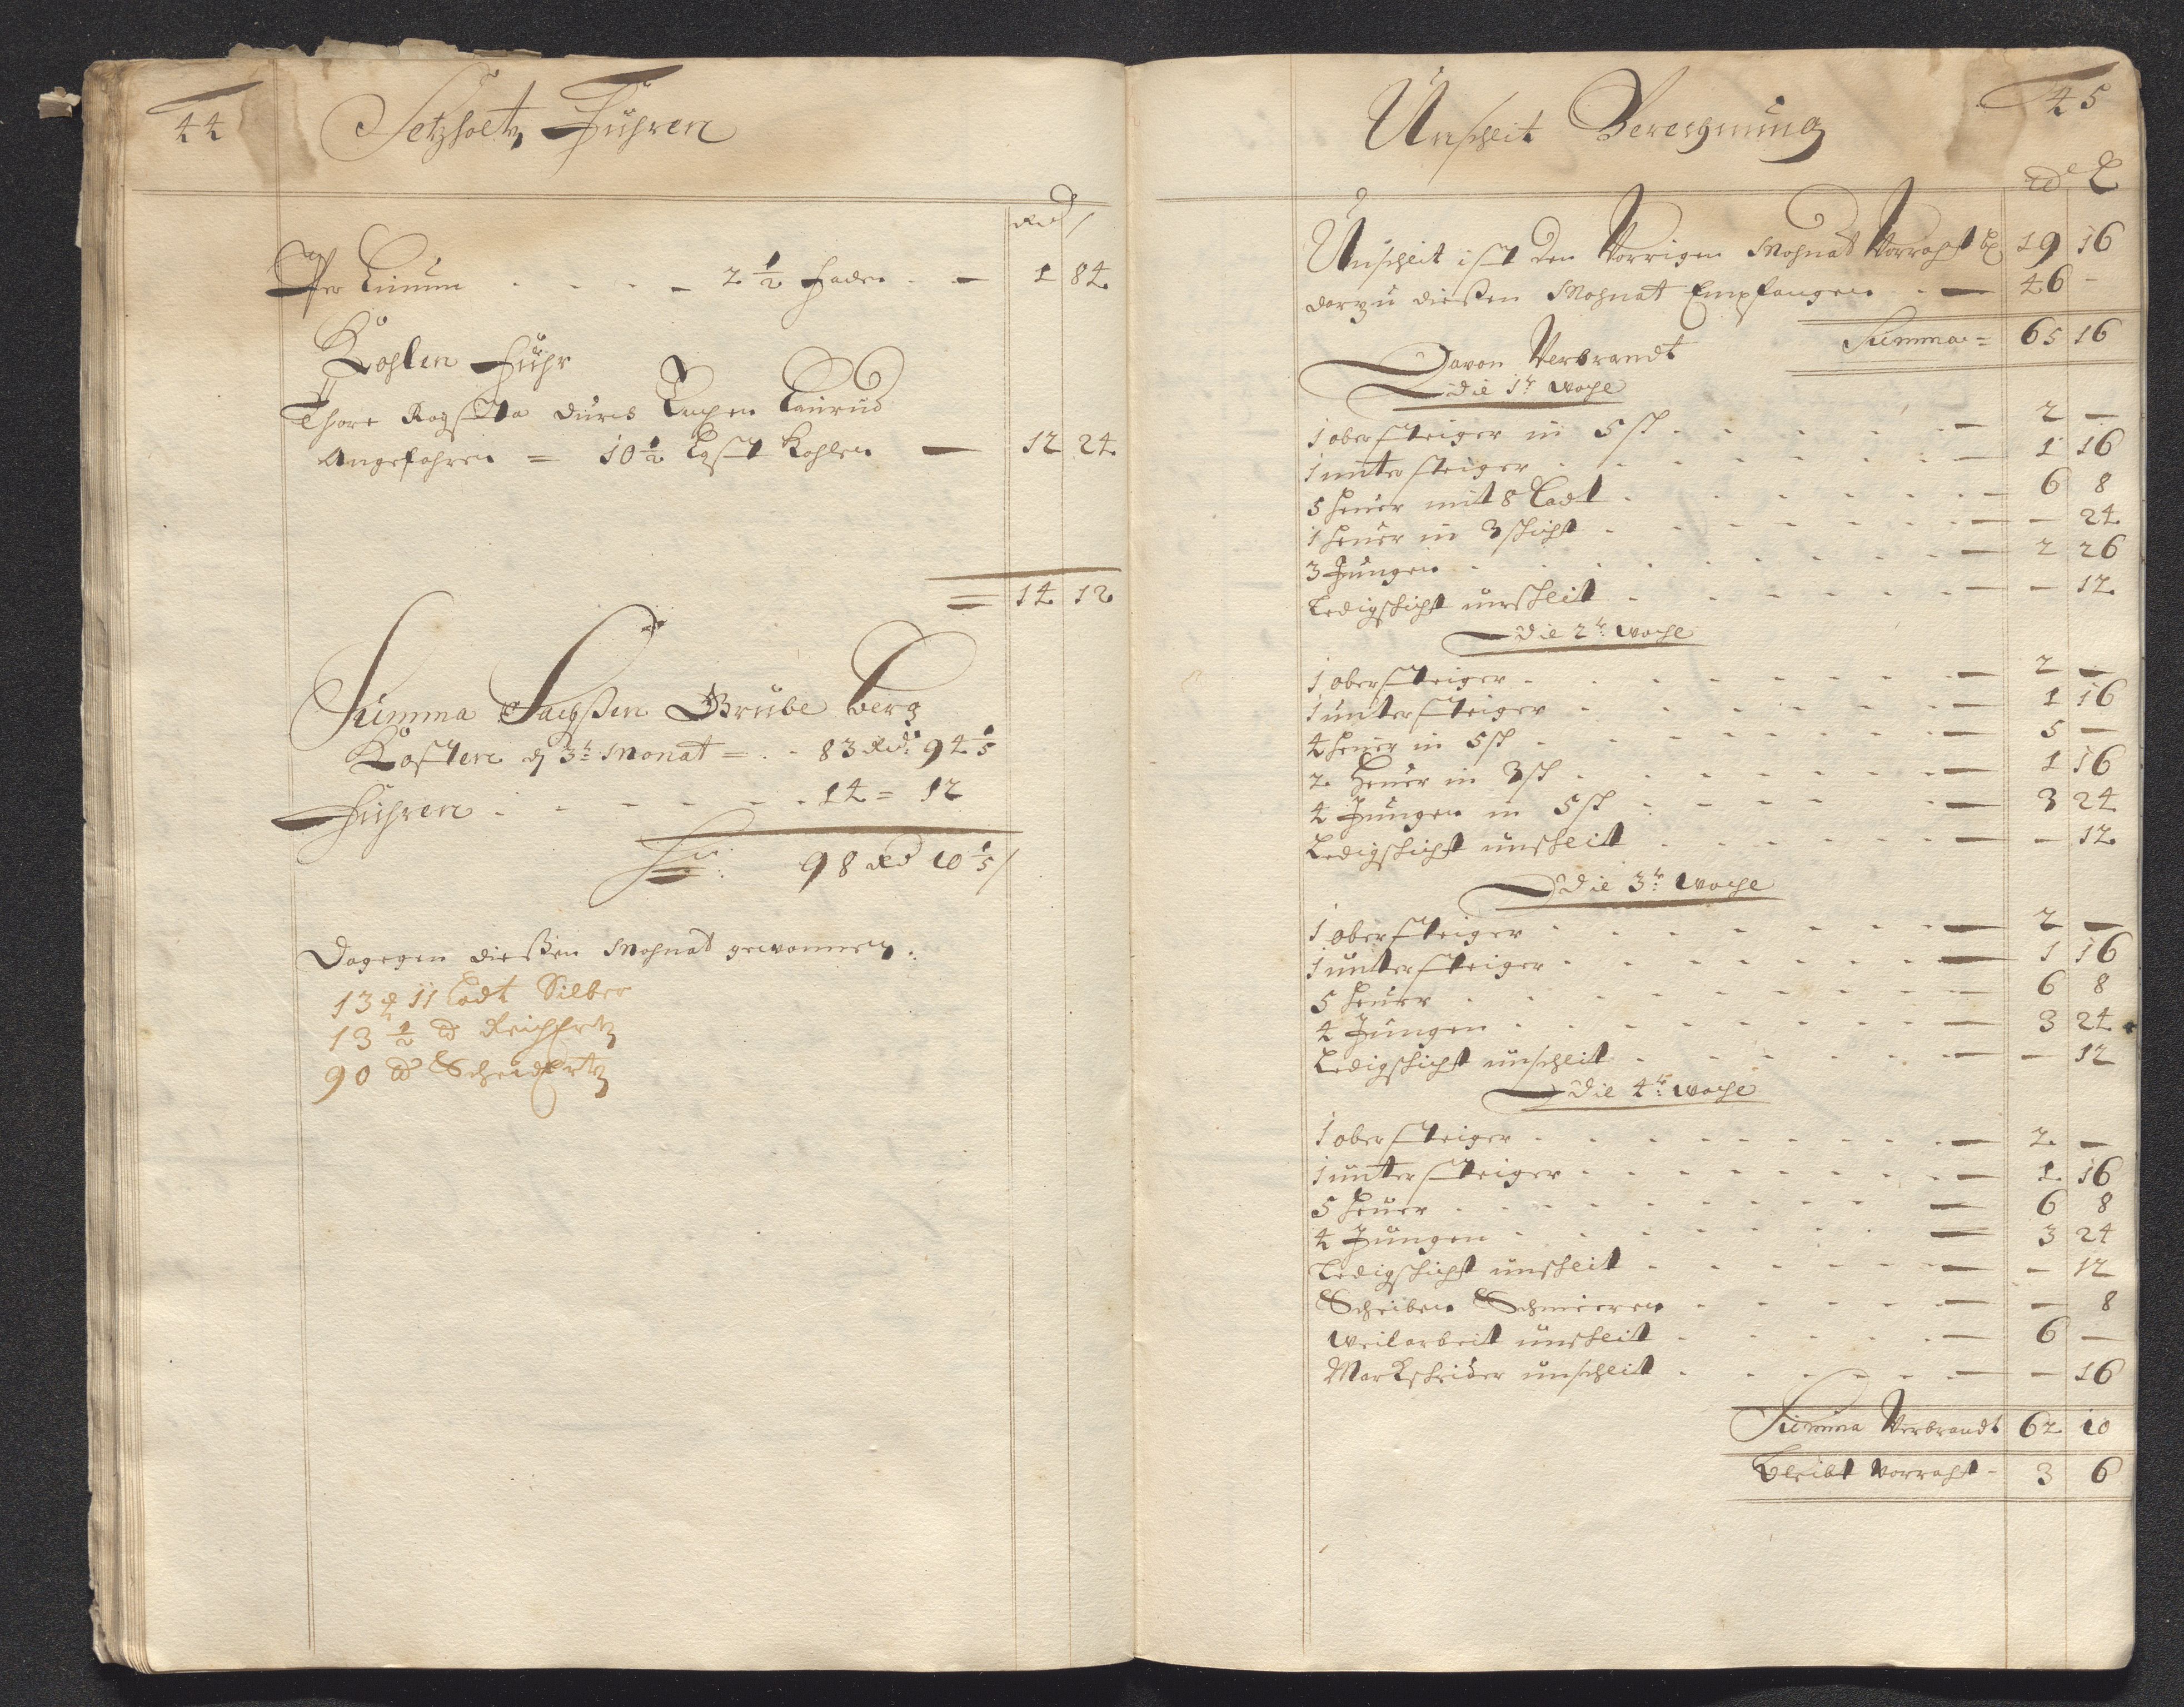 44
Setzholtz Führen
Rd /
Per Linum . . . . 2 1/2 faden . — 1 84
Kohlen Führ
Thore Rogstta durch
Angefahren = 10 1/2 Last Kohlen — 12 24
= 14 12
Summa Sachssen Grube berg
Kosten 3te Monat = . . 83 Rd: 94 1/5
Führen . . . . . . 14 = 12
98 Rd 10 1/5 /
Dagegen diessen Mohnat gewonnen:
11 Lodt Silber
13 1/2 Reich Ertz
90 Scheid Ertz
45
Unschlit Berechnung
Unschleit ist den Vorrigen Mohnat Vorraht 19 16
darzu diessen Mohnat Empfangen . — 46 -
Summa = 65 16
Davon Verbrandt
Die 1te woche
1 obersteiger in 5 sch . . . . . — 2 —
1 untersteiger . . . . . . — 1 16
5 heuer mit 8 Lodt . . . . . . — 6 8
1 heuer in 3 schicht . . . . . . — — 24
3 Jungen . . . . . . . — 2 26
Ledigschicht unschleit . . . . . . — — 12
Die 2te woche
1 obersteiger . . . . . . . — 2 —
1 untersteiger . . . . . . . — 1 16
4 heuer in 5 sch . . . . . . . — 5 —
2 heuer in 3 sch . . . . . . . — 1 16
4 Jungen in 5 sch . . . . . — 3 24
Ledigschicht unschleit . . . . . . — — 12
Die 3te woche
1 obersteiger . . . . . . . — 2 —
1 untersteiger . . . . . . . — 1 16
5 heuer . . . . . . . . — 6 8
4 Jungen . . . . . . . . — 3 24
Ledigschicht unschleit . . . . . . — — 12
Die 4te woche
1 obersteiger . . . . . . . . — 2 —
1 untersteiger . . . . . . . — 1 16
5 heuer . . . . . . . . — 6 8
4 Jungen . . . . . . . — 3 24
Ledigschicht unschleit . . . . . — — 12
Scheiben Schmieren . . . . . — — 8
Weilarbeit unschleit . . . . . — 6 —
Markscheider unschleit . . . . . . — — 16
Summa Verbrandt 62 10
Bleibt Vorraht - 3 6